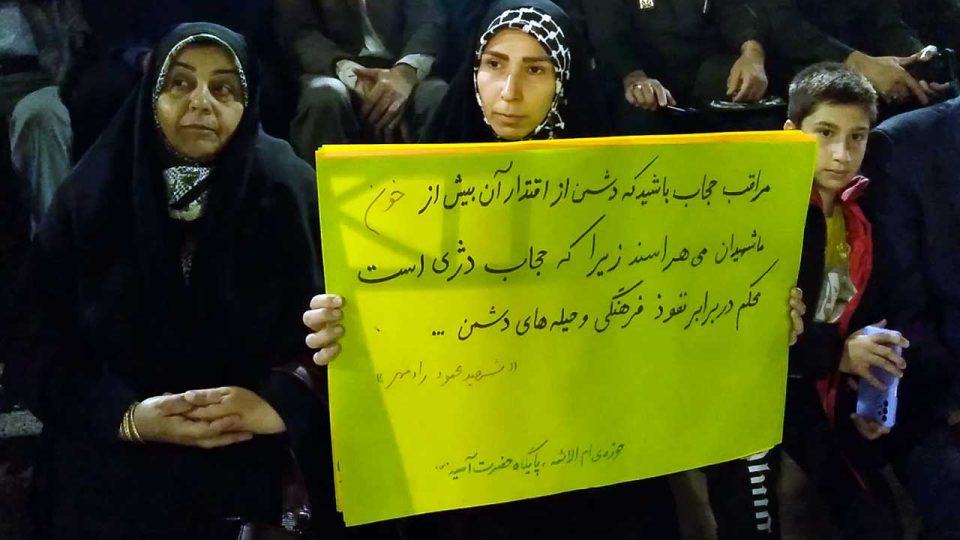 مراقب حجاب باشید که دشمن از اقتدار آن بیش از خون
ما شهیدان می هراسند زیرا که حجاب دژی است
محکم در برابر نفوذ فرهنگی و حیله های دشمن ...
«شهید محمود رادمهر»
حوزه ی ام الائمه، پایگاه حضرت آسیه